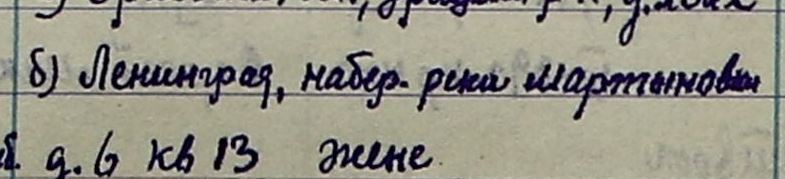 б) Ленинград, набер. реки Мартыновки
д. 6 кв 13 жене